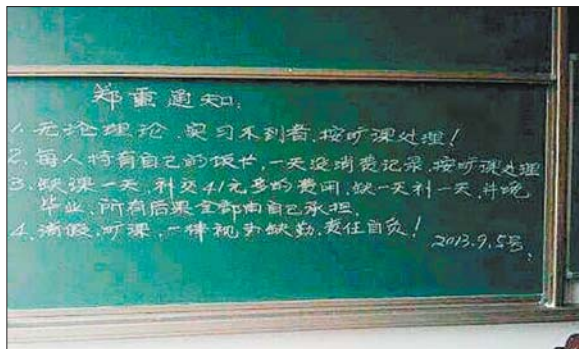 郑重通知:
1、无论理论、实习未到者,按旷课处理!
2、每人持有自己的饭卡,一天没消费记录,按旷课处理
3、缺课一天,补交41元多的费用,缺一天补一天,并晚
毕业,所有后果全部由自己承担。
4、请假,旷课,一律视为缺勤,责任自负!
2013.9.5号、